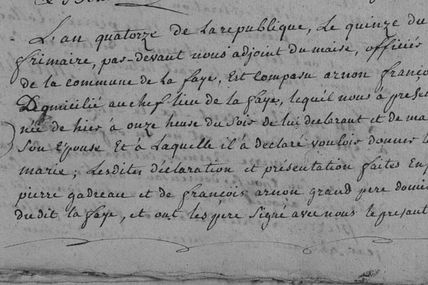 L'an quatorze de la republique, Le quinze du
frimaire, pas-devant nous adjoint du maise, officiés
de la commune de la faye, Est composu arnon françoi
Domicilié au chef lieu de la faye, lequil nous à présen
née de hies à onze heuse du Sois de lui declarant et de ma
Son Epouse Et à Laquelle il à déclaré voulois donner le
marie; Lesdites declaration et présentation faites En p
pierre gadreau et de françois arnon grand pere domi
du dit la faye, et ont les père Signé avec nous le présant